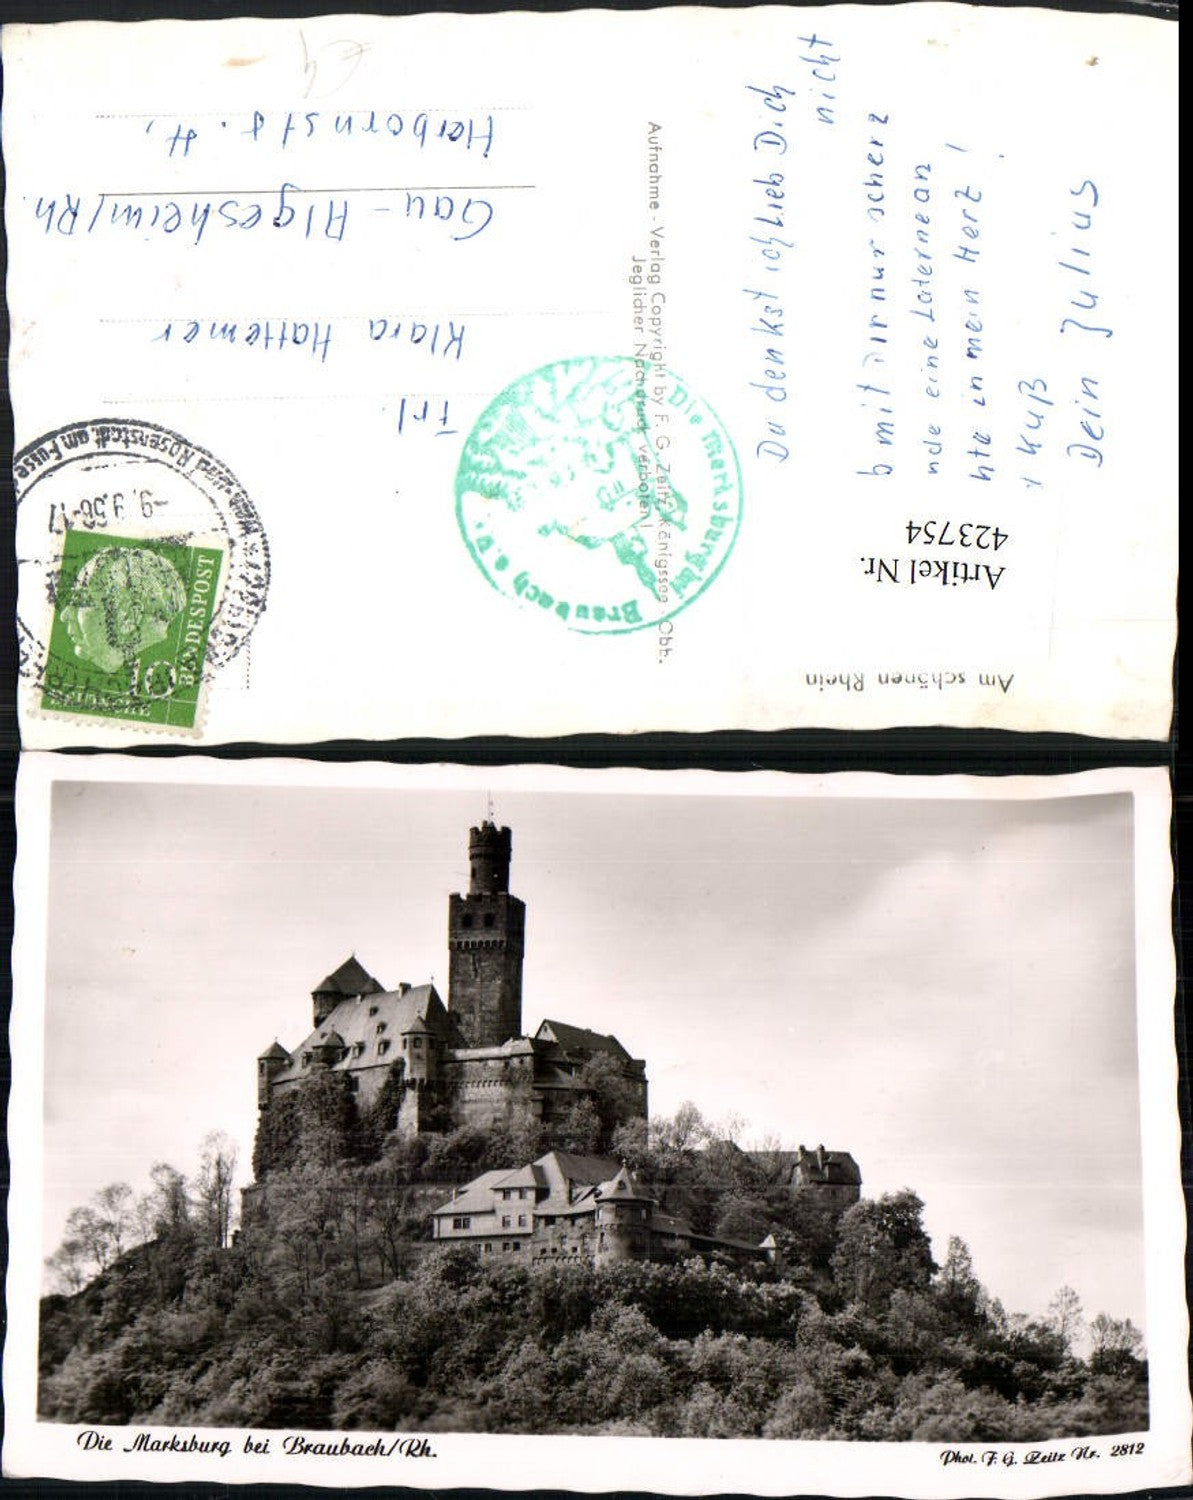 Am schönen Rhein
Artikel Nr.
423754
Du denkst ich lieb Dich
nicht
b mit Dir nur scherz
nde eine Laterne an
hte in mein Herz!
1 Kuß
Dein Julius
Aufnahme - Verlag Copyright by F. G. Zeitz, Königssee - Obb.
Jeglicher Nachdruck verboten!
Die Marksburg bei
Braubach e.V.
BUNDESPOST
10
-9. 9.56-17
und Rosenstadt am Fusse
Frl.
Klara Hattemer
Gau-Algesheim/Rh.
Herbornstr. 4,
Die Marksburg bei Braubach/Rh.
Phot. F. G. Zeitz Nr. 2812